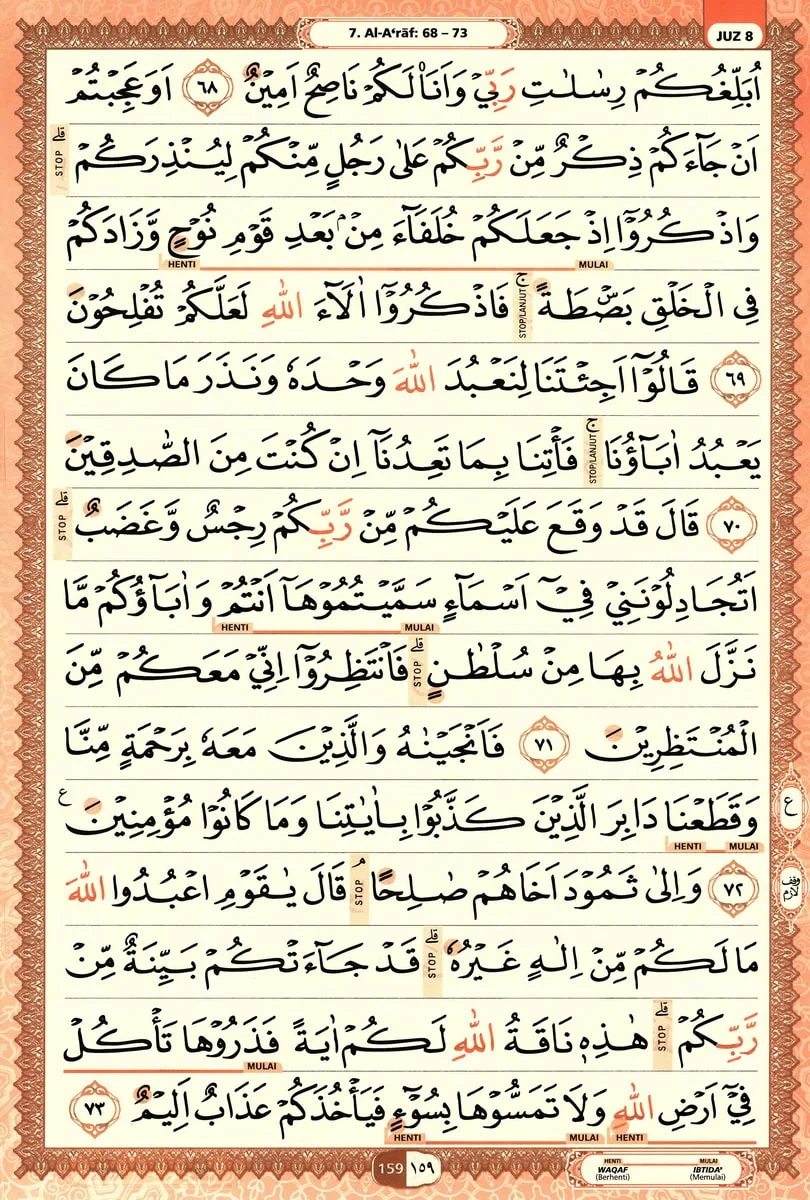 7. Al-A‘rāf: 68 – 73
JUZ 8
اُبَلِّغُكُمْ رِسٰلٰتِ رَبِّيْ وَاَنَا۠ لَكُمْ نَاصِحٌ اَمِيْنٌ ٦٨ اَوَعَجِبْتُمْ
اَنْ جَاۤءَكُمْ ذِكْرٌ مِّنْ رَّبِّكُمْ عَلٰى رَجُلٍ مِّنْكُمْ لِيُنْذِرَكُمْ ۗ STOP
وَاذْكُرُوْٓا اِذْ جَعَلَكُمْ خُلَفَاۤءَ مِنْۢ بَعْدِ قَوْمِ نُوْحٍ وَّزَادَكُمْ
MULAI HENTI
فِى الْخَلْقِ بَصْۣطَةً ۚ STOP/LANJUT فَاذْكُرُوْٓا اٰلَاۤءَ اللّٰهِ لَعَلَّكُمْ تُفْلِحُوْنَ
٦٩ قَالُوْٓا اَجِئْتَنَا لِنَعْبُدَ اللّٰهَ وَحْدَهٗ وَنَذَرَ مَا كَانَ
يَعْبُدُ اٰبَاۤؤُنَا ۚ STOP/LANJUT فَأْتِنَا بِمَا تَعِدُنَآ اِنْ كُنْتَ مِنَ الصّٰدِقِيْنَ
٧٠ قَالَ قَدْ وَقَعَ عَلَيْكُمْ مِّنْ رَّبِّكُمْ رِجْسٌ وَّغَضَبٌ ۗ STOP
اَتُجَادِلُوْنَنِيْ فِيْٓ اَسْمَاۤءٍ سَمَّيْتُمُوْهَآ اَنْتُمْ وَاٰبَاۤؤُكُمْ مَّا
MULAI HENTI
نَزَّلَ اللّٰهُ بِهَا مِنْ سُلْطٰنٍ ۗ STOP فَانْتَظِرُوْٓا اِنِّيْ مَعَكُمْ مِّنَ
الْمُنْتَظِرِيْنَ ٧١ فَاَنْجَيْنٰهُ وَالَّذِيْنَ مَعَهٗ بِرَحْمَةٍ مِّنَّا
وَقَطَعْنَا دَابِرَ الَّذِيْنَ كَذَّبُوْا بِاٰيٰتِنَا وَمَا كَانُوْا مُؤْمِنِيْنَ ࣖ
MULAI HENTI
ع
٧٢ وَاِلٰى ثَمُوْدَ اَخَاهُمْ صٰلِحًا ۘ STOP قَالَ يٰقَوْمِ اعْبُدُوا اللّٰهَ
وقف لازم
مَا لَكُمْ مِّنْ اِلٰهٍ غَيْرُهٗ ۗ STOP قَدْ جَاۤءَتْكُمْ بَيِّنَةٌ مِّنْ
رَّبِّكُمْ ۗ STOP هٰذِهٖ نَاقَةُ اللّٰهِ لَكُمْ اٰيَةً فَذَرُوْهَا تَأْكُلْ
MULAI
فِيْٓ اَرْضِ اللّٰهِ وَلَا تَمَسُّوْهَا بِسُوْۤءٍ فَيَأْخُذَكُمْ عَذَابٌ اَلِيْمٌ ٧٣
HENTI MULAI HENTI
159 ١٥٩
HENTI MULAI
WAQAF IBTIDA’
(Berhenti) (Memulai)